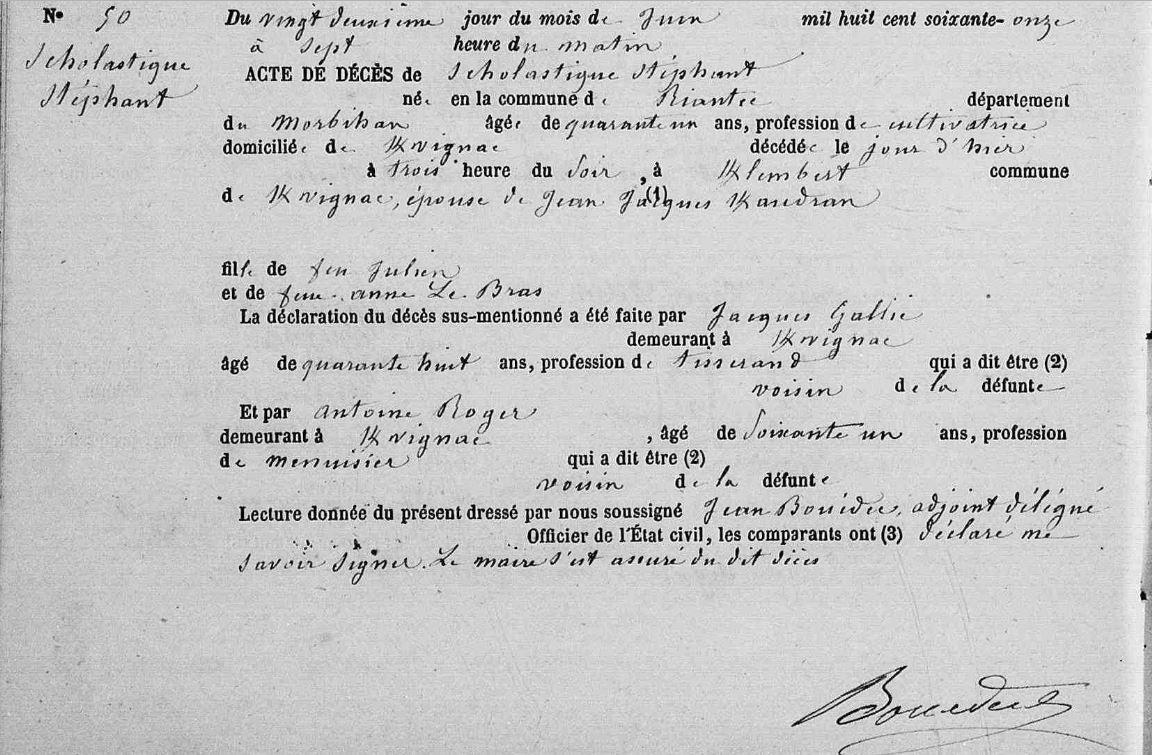 N° 50 Du vingt deuxième jour du mois de Juin mil huit cent soixante-onze
Scholastique
Stéphant
à Sept heure du matin
ACTE DE DÉCÈS de Scholastique Stéphant
née en la commune de Riantec département
du Morbihan âgée de quarante un ans, profession de cultivatrice
domiciliée de Kvignac décédée le jour d'hier
à trois heure du Soir, à Klembert commune
de Kvignac, épouse de Jean Jacques (1) Kaudran
fille de feu Julien
et de feue anne Le Bras
La déclaration du décès sus-mentionné a été faite par Jacques Gallic
demeurant à Kvignac
âgé de quarante huit ans, profession de tisserand qui a dit être (2)
voisin de la défunte
Et par Antoine Roger
demeurant à Kvignac, âgé de Soixante un ans, profession
de menuisier qui a dit être (2)
voisin de la défunte
Lecture donnée du présent dressé par nous soussigné Jean Bouédec, adjoint délégué
Officier de l'État civil, les comparants ont (3) déclaré ne
savoir signer. Le maire s'est assuré du dit décès
Bouedec